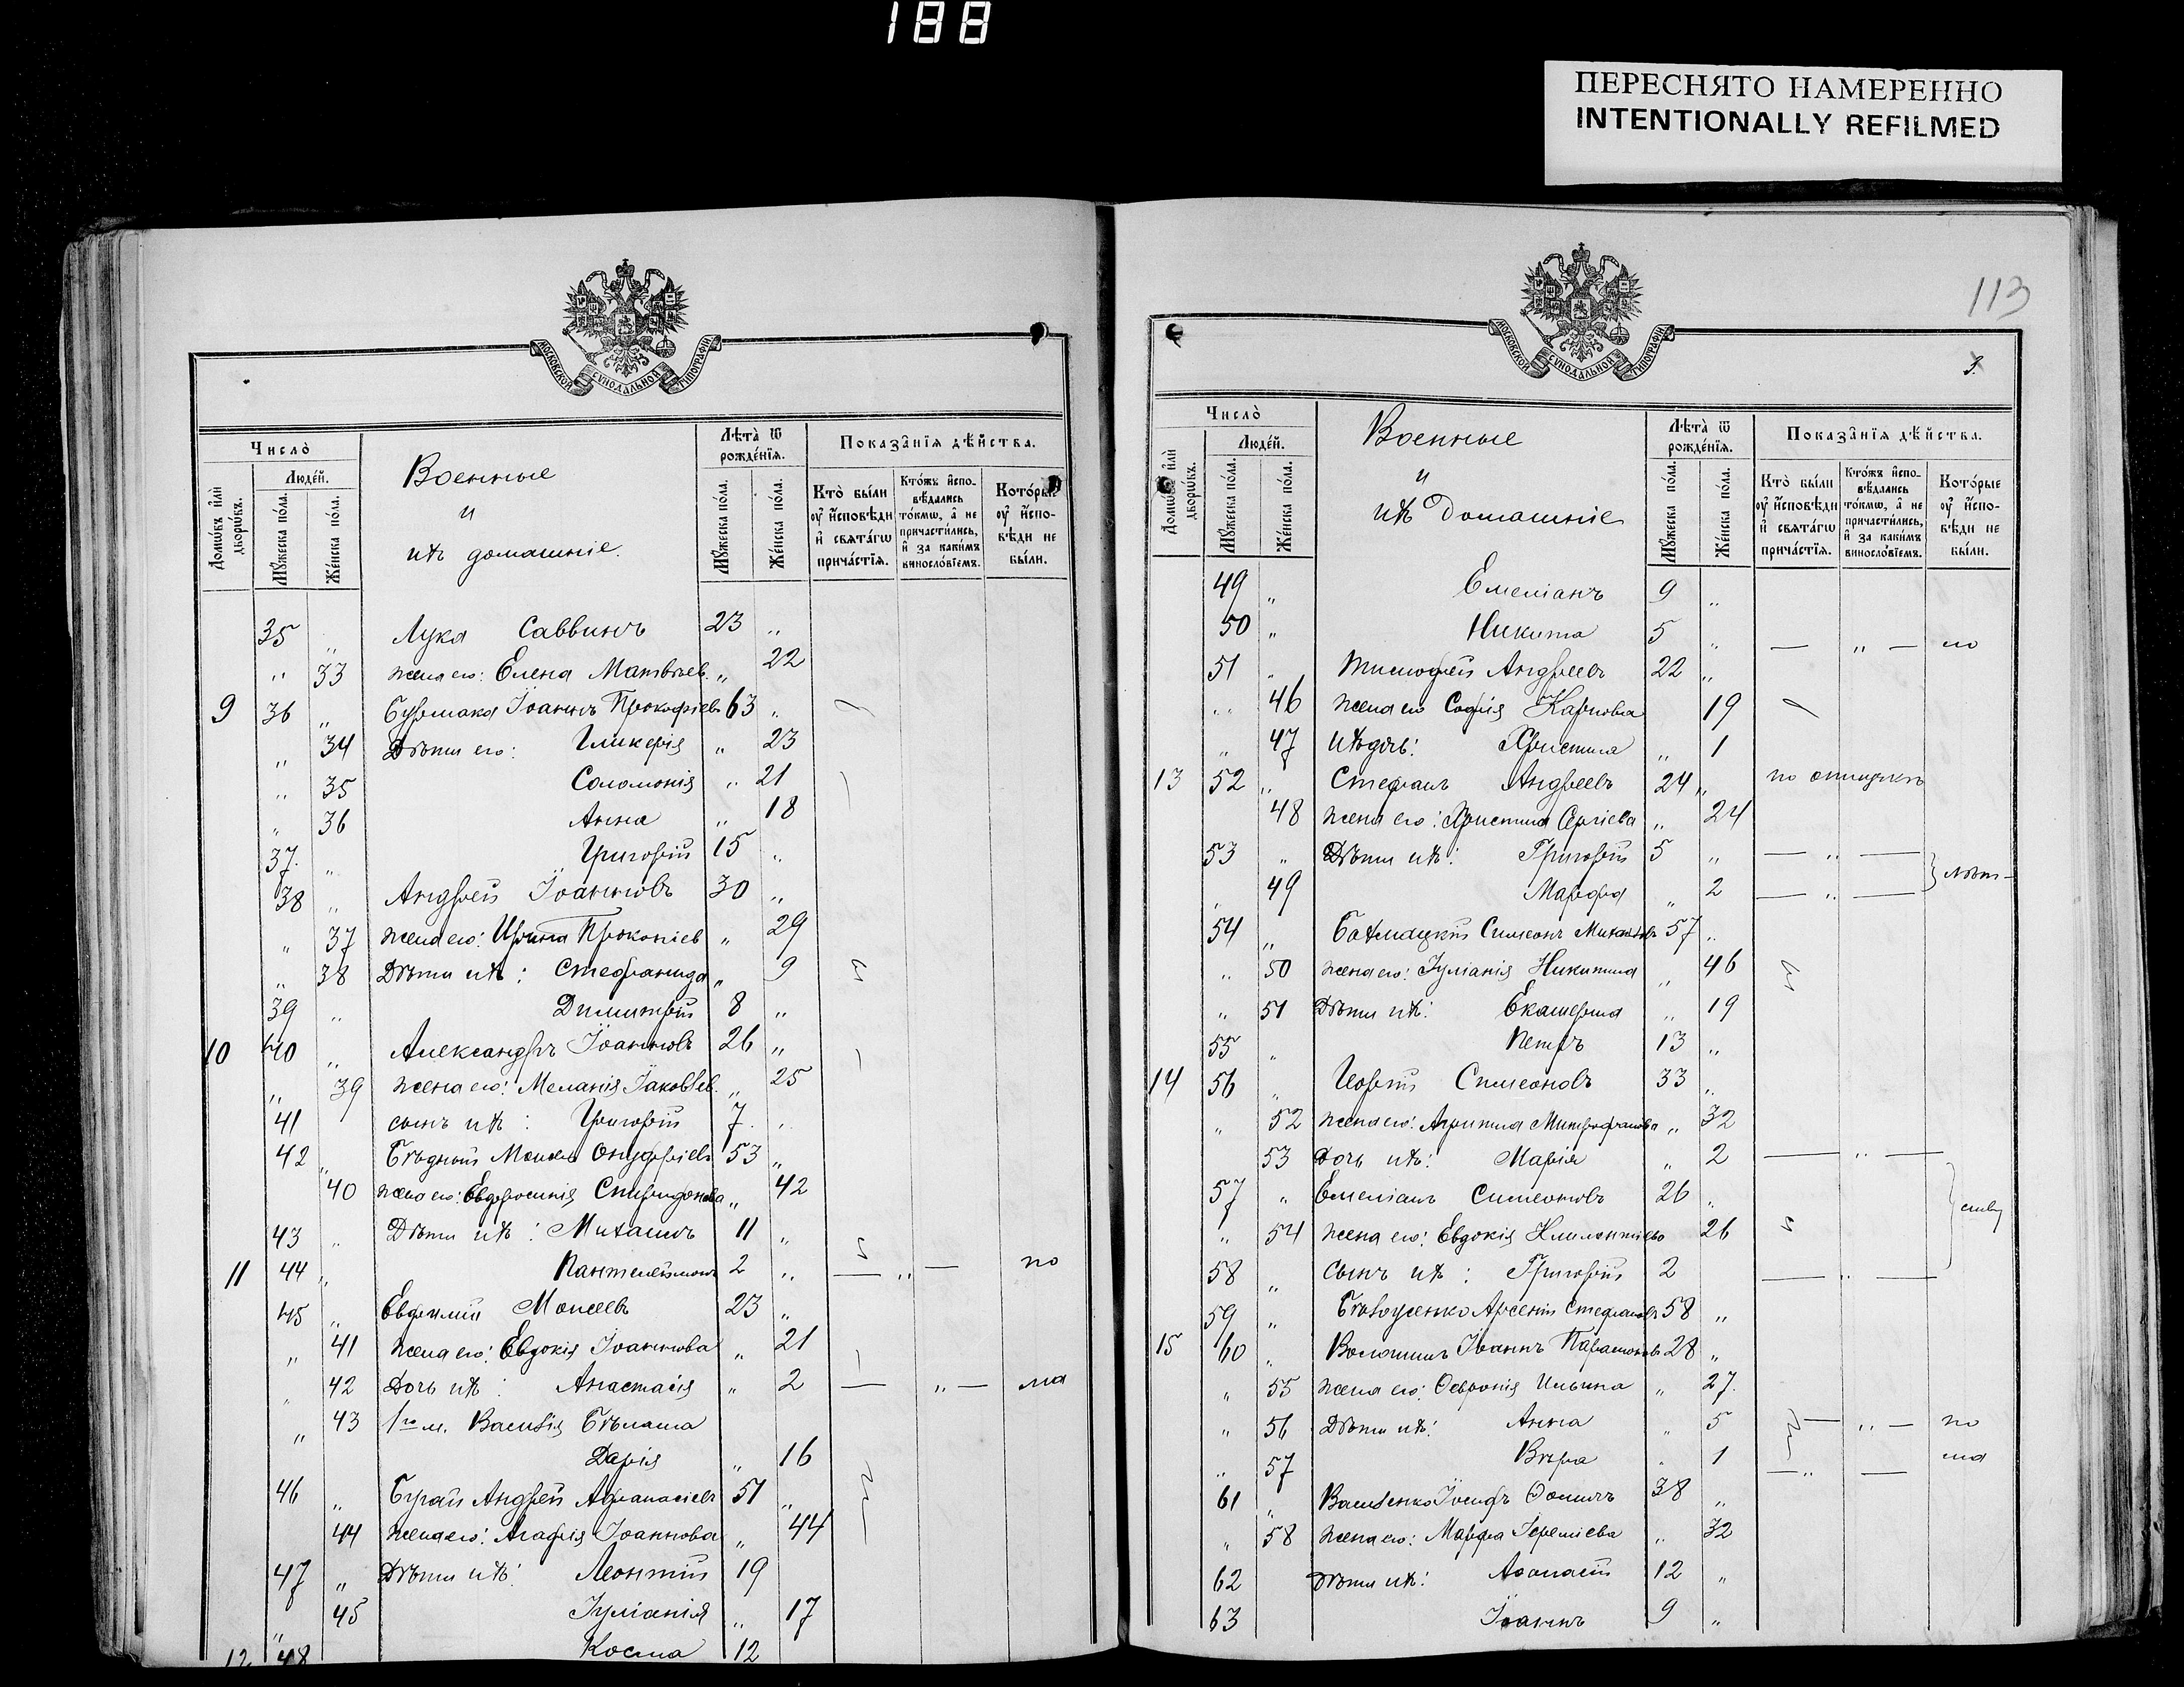 188
ПЕРЕСНЯТО НАМЕРЕННО
INTENTIONALLY REFILMED
МОСКОВСКОЙ СѴНОДАЛЬНОЙ ТИПОГРАФІИ
Число̀
Люде́й.
Домѡ́въ и҆лѝ дворѡ́въ.
Мꙋ́жеска по́ла.
Же́нска по́ла.
Военные
и
ихъ домашніе.
Лѣта̀ ѿ рожде́нїѧ.
Мꙋ́жеска по́ла.
Же́нска по́ла.
Показа̑нїѧ дѣ́йства.
Кто̀ бы́ли оу҆ и҆сповѣ́ди и҆ свѧта́гѡ прича́стїѧ.
Кто́жъ и҆сповѣ́дались то́кмѡ, а҆ не причасти́лись, и҆ за каки́мъ винослові́емъ.
Кото́рые оу҆ и҆сповѣ́ди не бы́ли.
35 „ Лука Саввинъ 23 „
„ 33 жена его: Елена Матвѣев. „ 22
9 36 „ Іоаннъ Прокофіевъ 63 „
„ 34 Дѣти его: Гликерія „ 23
„ 35 Соломонія „ 21
„ 36 Анна „ 18
37. „ Григорій 15 „
38 „ Андрей Іоанновъ 30 „
„ 37 жена его: Ирина Прокопіев „ 29
„ 38 Дѣти ихъ: Стефанида „ 9
39 „ Димитрій 8 „
10 40 „ Александръ Іоанновъ 26 „
„ 39 жена его: Меланія Іаковлев. „ 25
41 сынъ ихъ: Григорій 7 „
42 „ Бѣдный Моисей Онуфріевъ 53 „
40 жена его: Евфросинія Спиридонова „ 42
43 „ Дѣти ихъ: Михаилъ 11 „
11 44 „ Пантелеимонъ 2 „ — „ — по
45 „ Евфимій Моисеевъ 23 „
„ 41 жена его: Евдокія Іоаннова „ 21
„ 42 Дочь ихъ: Анастасія „ 2 — „ — ма
„ 43 Василія
Дарія „ 16
46 „ Бугай Андрей Афанасіевъ 51 „
44 жена его: Агафія Іоаннова „ 44
47 „ Дѣти ихъ: Леонтій 19
„ 45 Іуліанія „ 17
12 48 Косма 12
113
МОСКОВСКОЙ СѴНОДАЛЬНОЙ ТИПОГРАФІИ
Число̀
Люде́й.
Домѡ́въ и҆лѝ дворѡ́въ.
Мꙋ́жеска по́ла.
Же́нска по́ла.
Военные
и
ихъ Домашніе
Лѣта̀ ѿ рожде́нїѧ.
Мꙋ́жеска по́ла.
Же́нска по́ла.
Показа̑нїѧ дѣ́йства.
Кто̀ бы́ли оу҆ и҆сповѣ́ди и҆ свѧта́гѡ прича́стїѧ.
Кто́жъ и҆сповѣ́дались то́кмѡ, а҆ не причасти́лись, и҆ за каки́мъ винослові́емъ.
Кото́рые оу҆ и҆сповѣ́ди не бы́ли.
49 „ Емеліанъ 9 „
50 „ Никита 5 „ — „ —
51 „ Тимофей Андреевъ 22 „
„ 46 жена его София Карповна 19
„ 47 ихъ дочь: Христина „ 1
13 52 „ Стефанъ Андреевъ 24 „
48 жена его: Христина Сергіева „ 24
53 „ Дѣти ихъ: Григорій 5 „ — „ —
„ 49 Марфа „ 2 — „ —
54 „ Симеонъ 57 „
„ 50 жена его: Іуліанія Никитина „ 46
„ 51 Дѣти ихъ: Екатерина „ 19
55 „ Петръ 13 „
14 56 „ Симеоновъ 33 „
„ 52 жена его: Агрипина Митрофанова „ 32
53 Дочь ихъ: Марія „ 2 — „ —
57 „ Емеліанъ Симеоновъ 26 „
„ 54 жена его: Евдокія 26
58 „ Сынъ ихъ: Григорій 2 — „ —
59 „ Арсеній Стефановъ 58 „
15 60 „ Волошинъ Іоаннъ Парамоновъ 28 „
„ 55 жена его: Ѳевронія Ильина „ 27.
„ 56 Дѣти ихъ: Анна „ 5 — „ — по
„ 57 Вѣра „ 1 — „ — ма
61 „ Василенко Іосифъ Ѳоминъ 38 „
„ 58 жена его: Марфа Іереміева „ 32
62 Дѣти ихъ: Аѳанасій 12 „
63 Іоаннъ 9 „